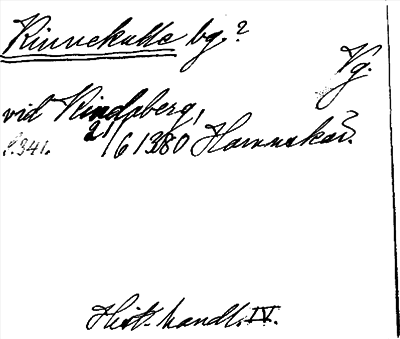 Kinnekulle bg.?
Vg.
vid Kindaberg,
S.341. 21/6 1380 Hammskar?
Hist. handl. IV.